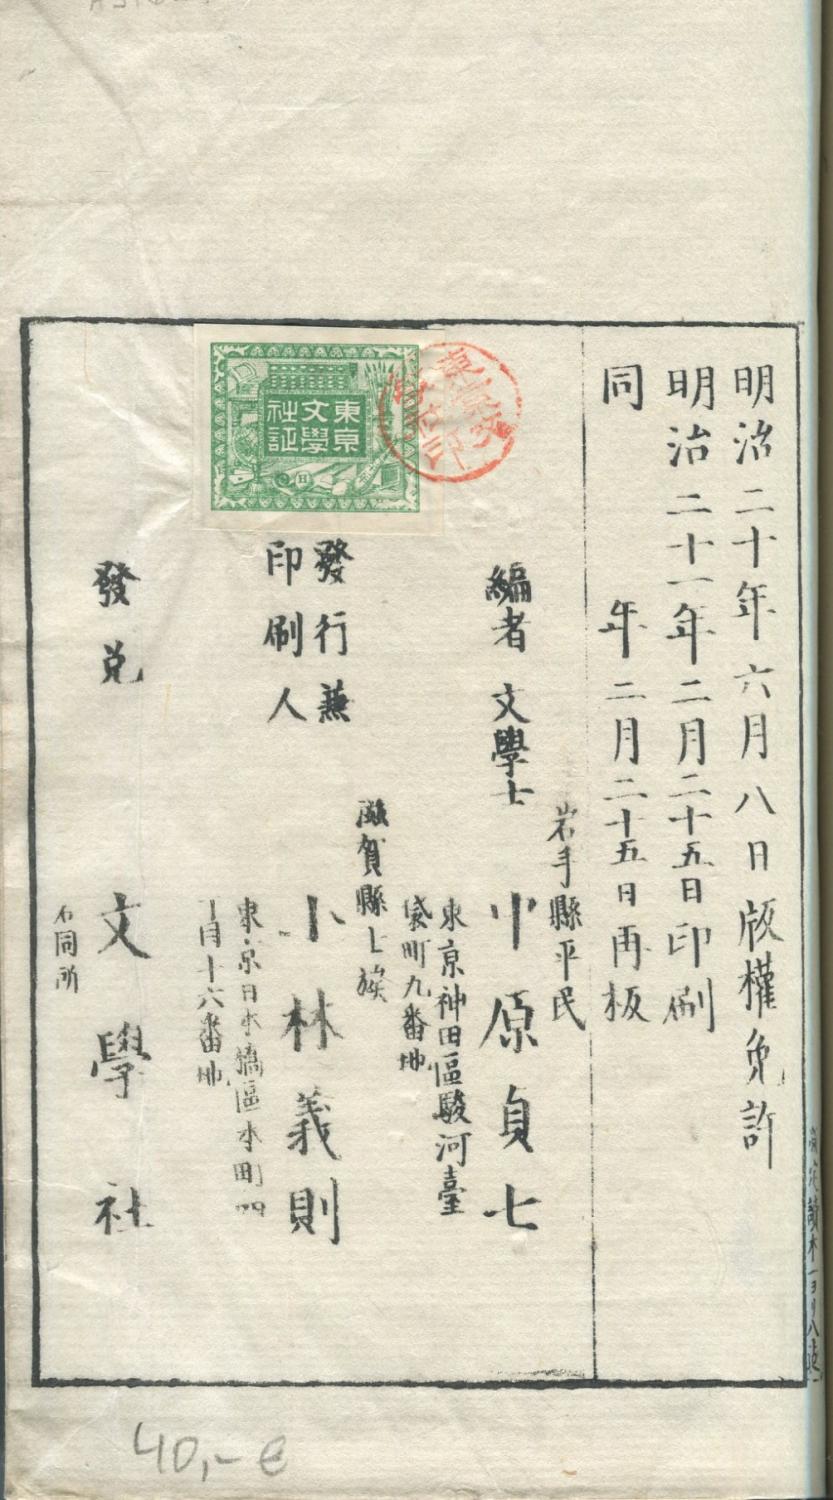 明治二十年六月八日版權免許
明治二十一年二月二十五日印刷
同年二月二十五日再板
岩手縣平民
編者 文學士 中原貞七
東京神田區駿河臺
袋町九番地
滋賀縣士族
發行兼
印刷人
小林義則
東京日本橋區本町四
丁目十六番地
發兌 文學社
右同所
東京
文學
社証
讀本一ヨリ八
40,- €